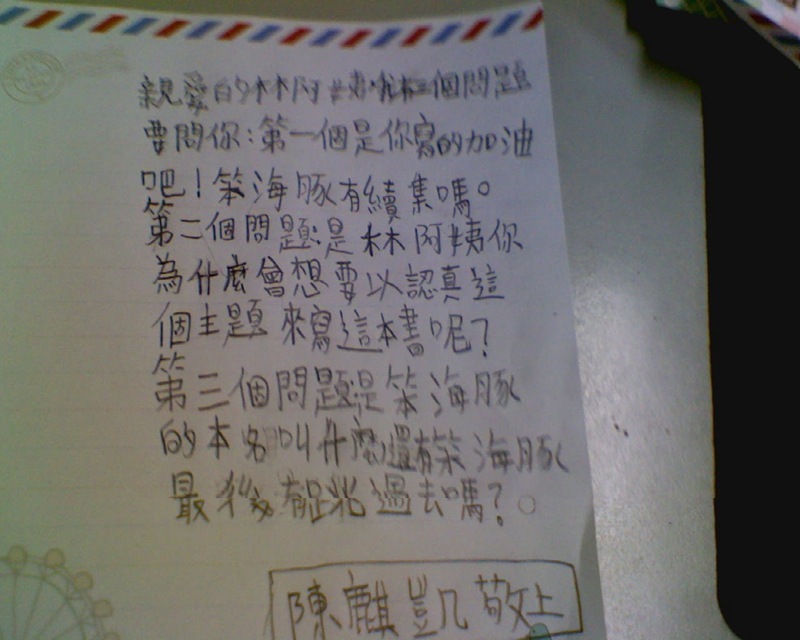 親愛的林阿姨 三個問題
要問你：第一個是你寫的加油
吧！笨海豚有續集嗎。
第二個問題是林阿姨你
為什麼會想要以認真這
個主題來寫這本書呢？
第三個問題是笨海豚
的本名叫什麼還有笨海豚
最後有 過去嗎？。
陳麒凱敬上